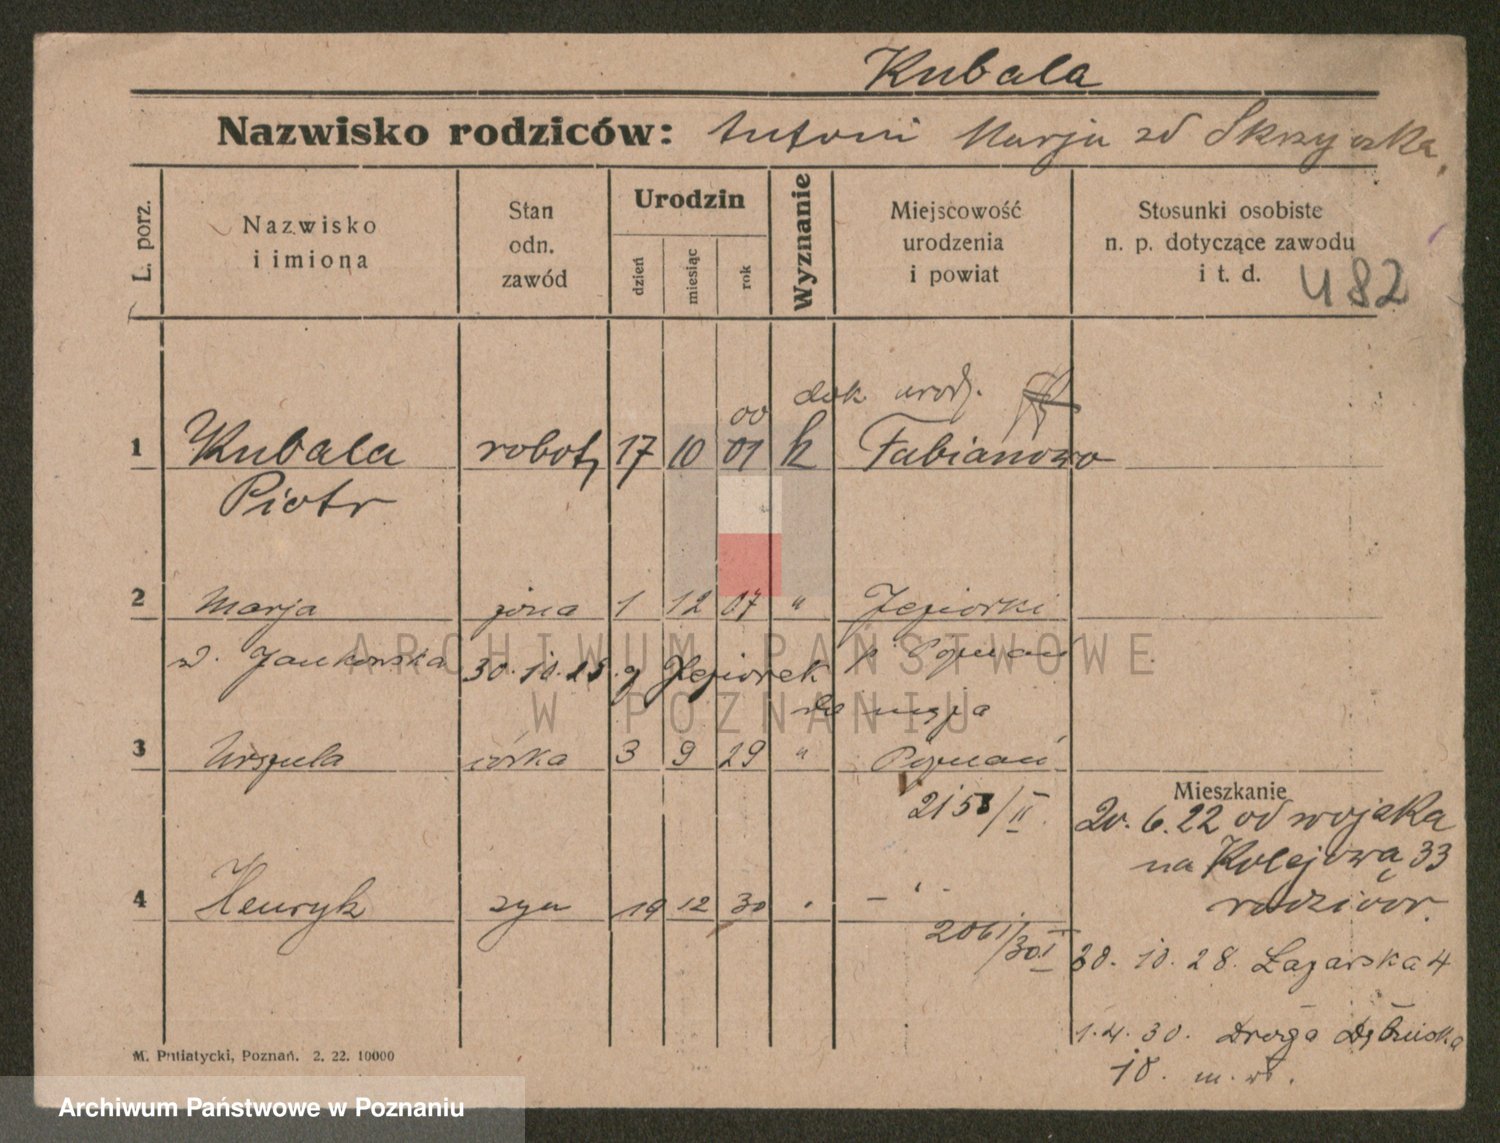 Kubala
Nazwisko rodziców: Antoni Marja zd Skrzy
L. porz.
Nazwisko
i imiona
Stan
odn.
zawód
Urodzin
dzień
miesiąc
rok
Wyznanie
Miejscowość
urodzenia
i powiat
Stosunki osobiste
n. p. dotyczące zawodu
i t. d.
482
dok. urodz.
00
1 Kubala robotn 17 10 01 k Fabianowo
Piotr
2 Marja żona 1 12 07 " Jeziorki
z d. Jankowska 30.10.28. z Jeziorek p. Poznań
do męża
3 Urszula córka 3 9 29 " Poznań
2158/II.
Mieszkanie
20. 6. 22 od wojska
na Kolejową 33
rodziców.
4 Henryk syn 19 12 30 " — " —
2061/30 I
30. 10. 28. Łazarska 4
1. 4. 30. Droga Dębińska
10. m. wł.
M. Putiatycki, Poznań. 2. 22. 10000
ARCHIWUM PAŃSTWOWE
W POZNANIU
Archiwum Państwowe w Poznaniu